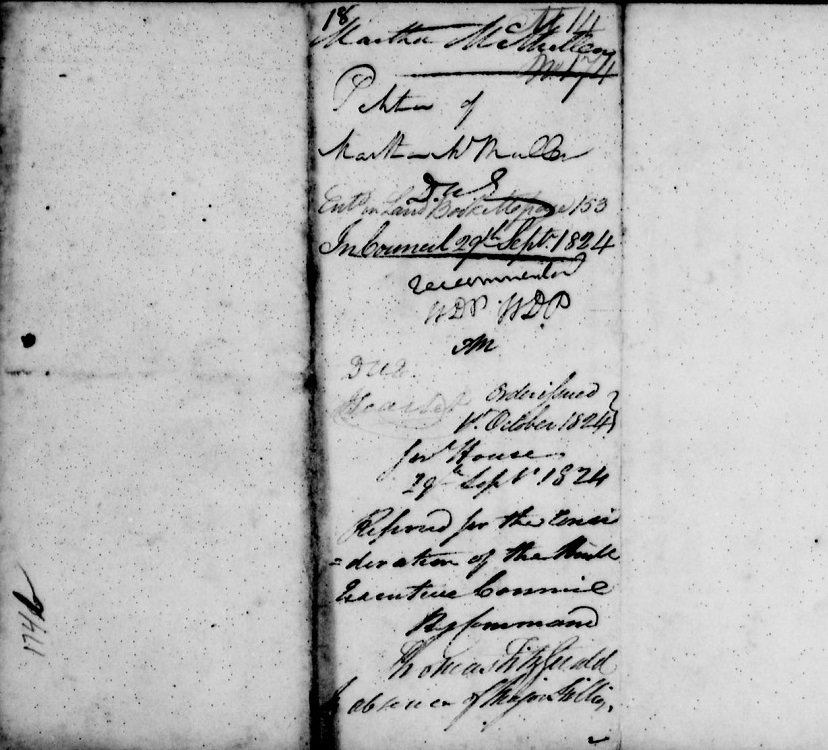 18 M 14
Martha McMullen
No 174
Petition of
Martha McMullen
D.U.E
Entd in Land Book page 153
In Council 29th Sept. 1824
recommended
WDP. WDP.
DUE.
Order issued
1st October 1824
Govt House
29th Sept 1824
Referred for the consi
=deration of the
Executive Council
By Command
Thomas FitzGerald
absence of Major Hillier
174b